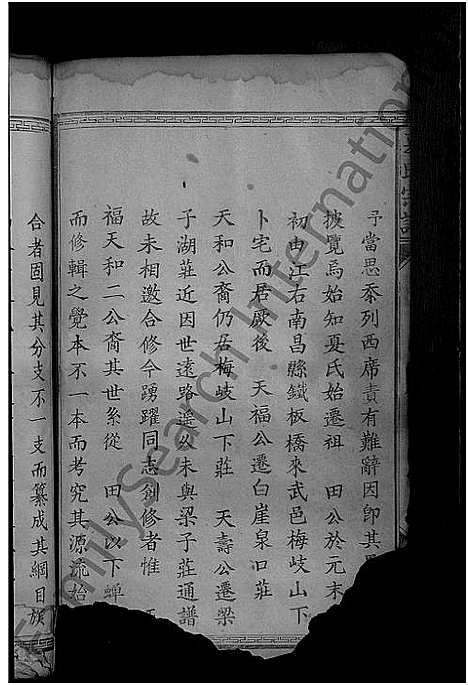 予當思忝列西席責有難辭因即其
披覽焉始知夏氏始遷祖 田公於元末
初由江右南昌縣鐵板橋來武邑梅岐山下
卜宅而居厥後 天福公遷白崖泉口莊
天和公裔仍居梅岐山下莊 天壽公遷梁
子湖莊近因世遠路遥公未與梁子莊通譜
故未相邀合修今踴躍同志創修者惟
福天和二公裔其世系從 田公以下蟬
而修輯之覺本不一本而考究其源流始
合者固見其分支不一支而纂成其綱目族
氏宗譜
FamilySearch International